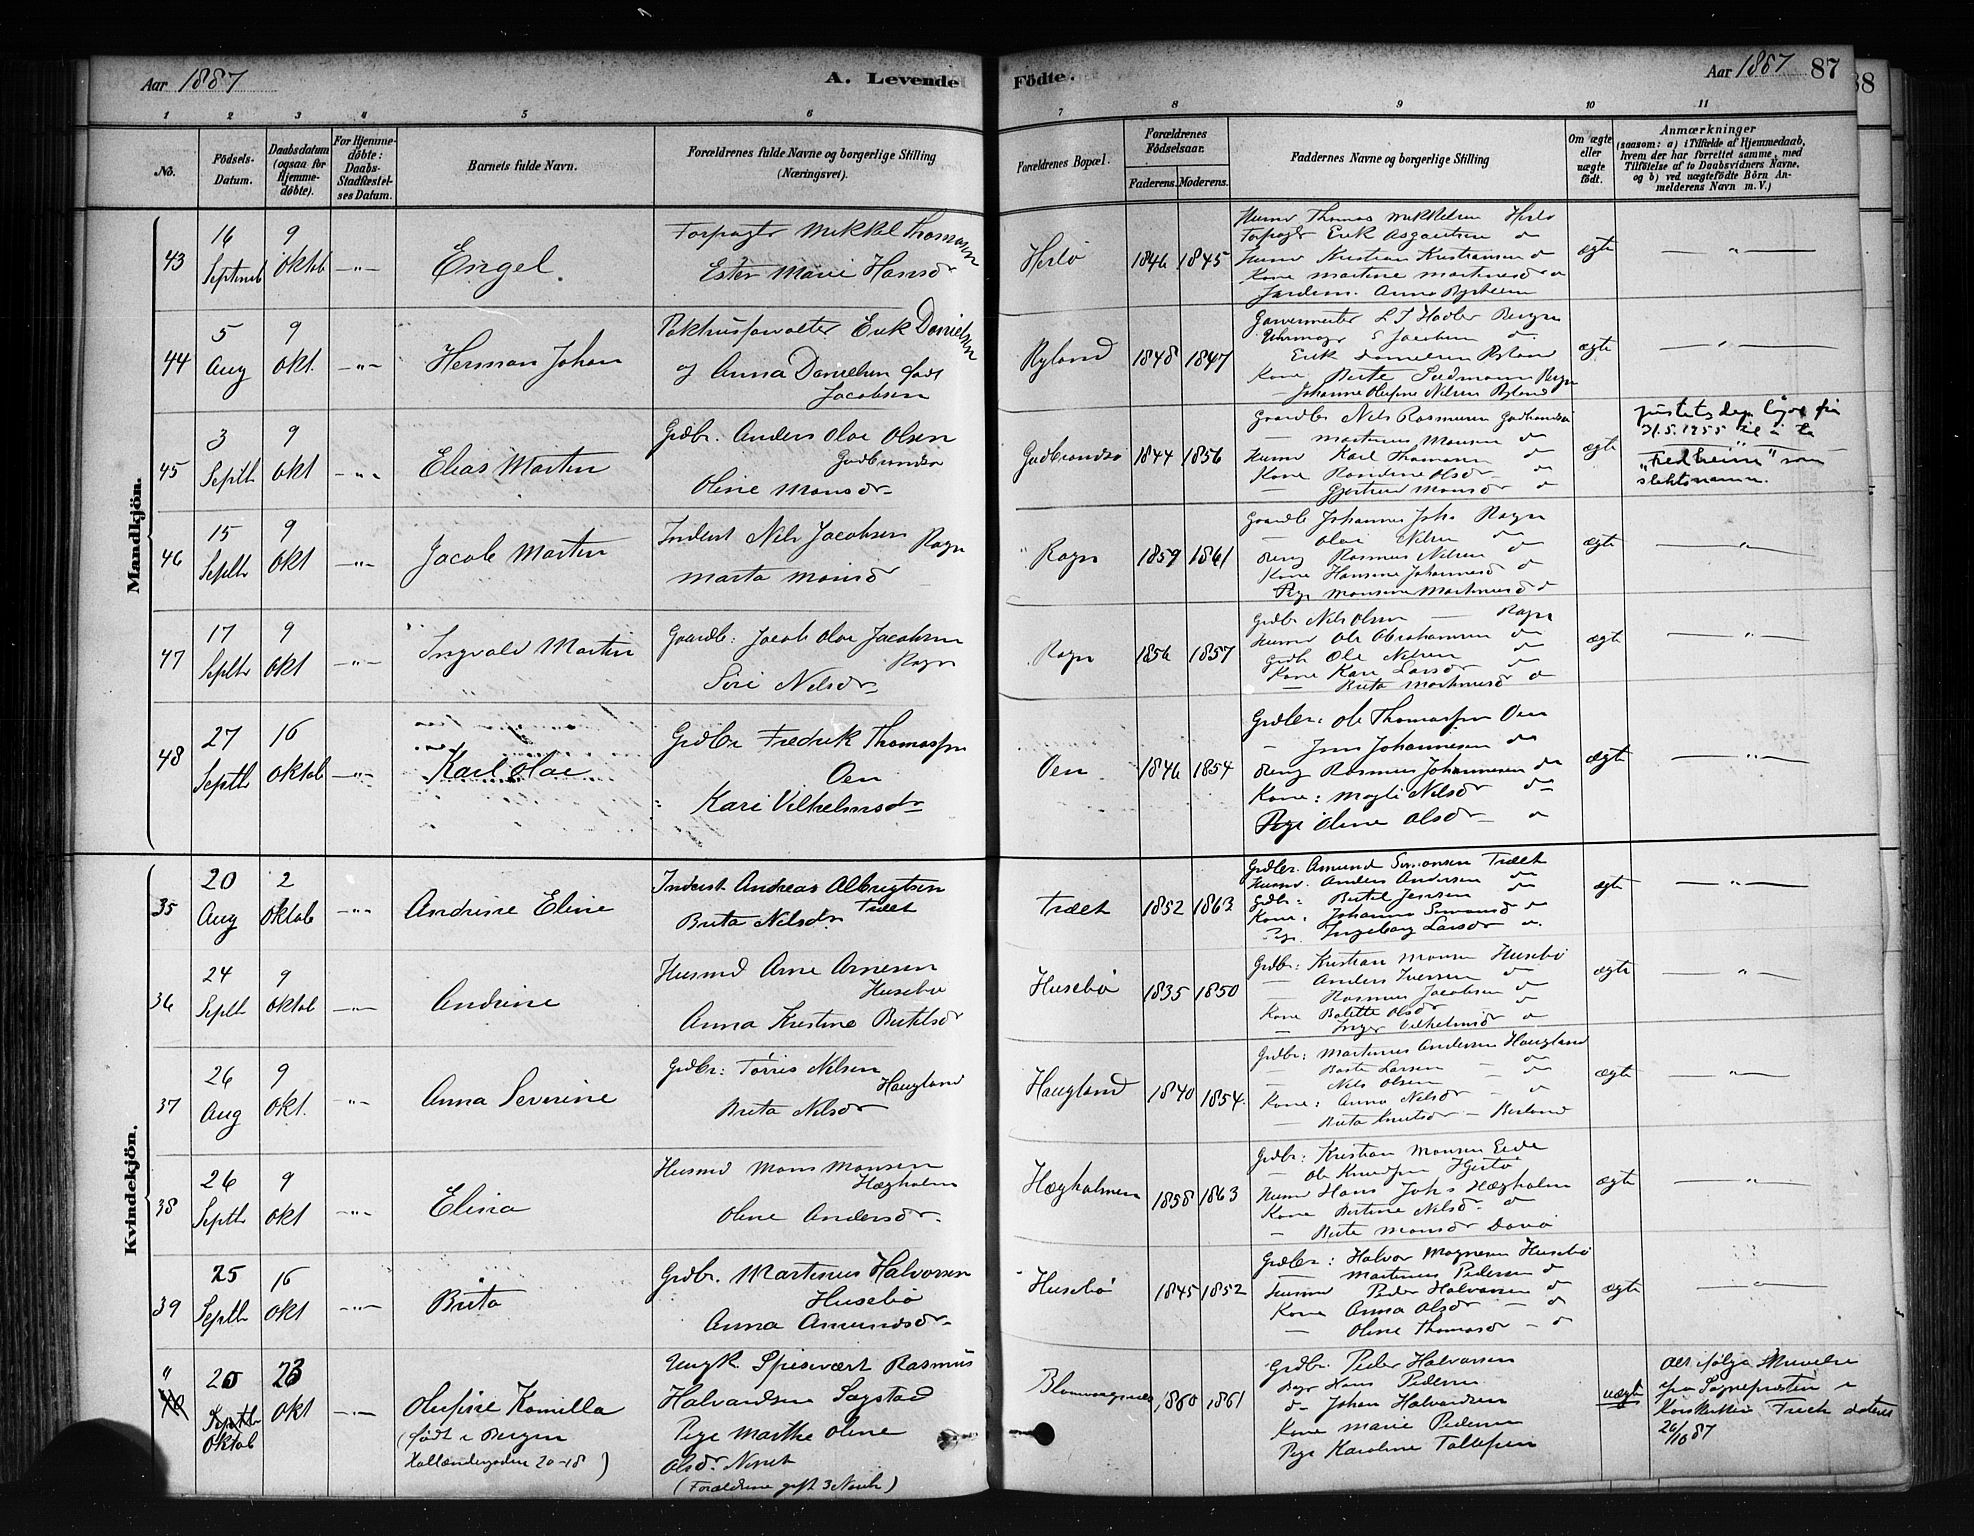 Aar 1887
A. Levende Födte.
Aar 1887 87
88
1 2 3 4 5 6 7 8 9 10 11
No.
Födsels-Datum.
Daabsdatum (ogsaa for Hjemme-döbte).
For Hjemme-döbte: Daabs-Stadfæstel-ses Datum.
Barnets fulde Navn.
Forældrenes fulde Navne og borgerlige Stilling (Næringsvei).
Forældrenes Bopæl.
Forældrenes Födselsaar.
Faderens. Moderens.
Faddernes Navne og borgerlige Stilling
Om ægte eller uægte födt.
Anmærkninger
(saasom: a) i Tilfælde af Hjemmedaab, hvem der har forrettet samme, med Tilföielse af to Daabsvidners Navne, og b) ved uægtefödte Börn Anmelderens Navn m. V.)
Mandkjön.
43 16 Septemb 9 Oktb —"— Engel.
Forpagter Mikkel Thomasen
Ester Marie Hansdr
Herlö 1846 1845
Husmd Thomas Mikkelsen Herlö
Forpagter Erik Asgautsen do
Husmd Kristian Kristiansen do
Kone Martine Martinusdr do
ægte —"—
44 5 Aug 9 Okt. —"— Herman Johan
Pakhusforvalter Erik Danielsen
og Anna Danielsen født
Jacobsen
Ryland 1848 1847
Garvermester L J Bergen
Uhrmager Jacobsen do
Erik Danielsen Ryland
Kone Berte Bergn
Johanne Olufine Nilsen Ryland
ægte —"—
45 3 Septb 9 Okt —"— Elias Martin
Grdbr. Anders Olai Olsen
Gudbrandsö
Oline Monsdr
Gudbrandsö 1844 1856
Gaardbr Nils Rasmusen Gudbrandsö
— Martinus Monsen do
Husmd Karl Thomasen do
Kone Olsdr do
— Gjertrud Monsdr do
ægte
31.5.1955 til å ta
"Fredheim" som
slektsnamn.
46 15 Septb 9 Okt —"— Jacob Martin
Inderst Nils Jacobsen Rogn
Marta Monsdr
Rogn 1859 1861
Gaardb Johannes Johs Rogn
— Olai Nilsen do
Dreng Rasmus Nilsen do
Kone Hansine Johannesdr do
Pige Monsine Martinusdr do
ægte —"—
47 17 Septb 9 Okt —"— Ingvald Martin
Gaardb: Jacob Olai Jacobsen
Rogn
Siri Nilsdr
Rogn 1856 1857
Grdbr Nils Olsen — Rogn
Husmd Ole Abrahamsen do
Grdb Ole Nilsen do
Kone Kari Larsdr do
— Brita Martinusdr do
ægte —"—
48 27 Septb 16 Oktob —"— Karl Olai
Grdbr Fredrik Thomassen
Oen
Kari Vilhelmsdr
Oen 1846 1854
Grdbr: Ole Thomassen Oen
— Jens Johannesen do
Dreng Rasmus Johannesen do
Kone: Magli Nilsdr do
Pige Oline Olsdr — do
ægte —"—
Kvindekjön.
35 20 Aug 2 Oktob —"— Andrine Eline
Inderst Andreas Albrigtsen
Brita Nilsdr. Træet
Træet 1852 1863
Grdbr. Amund Simonsen Træet
Husmd. Anders Andersen do
Grdb: Bertel Jensen do
Kone: Johanna Simonsd do
Pige. Ingeborg Larsdr do.
ægte —"—
36 24 Septb 9 Oktob —"— Andrine
Husmd Arne Arnesen
Husebö
Anna Kristine Bertelsdr
Husebö 1835 1850
Grdbr: Kristian Monsen Husebö
— Anders Iversen do
— Rasmus Jacobsen do
Kone Bolette Olsdr do
— Inger Vilhelmsdr do
ægte —"—
37 26 Aug 9 Okt. —"— Anna Severine
Grdbr: Tørris Nilsen
Haugland
Brita Nilsdr
Haugland 1840 1854.
Grdbr: Martinus Andersen Haugland
— Larsen — do
— Nils Olsen — do
Kone: Anna Nilsdr — do
— Brita Knutsdr —
ægte —"—
38 26 Septb 9 Okt —"— Elina
Husmd Mons Monsen
Hægholm
Oline Andersdr.
Hægholmen 1858 1863
Grdbr: Kristian Monsen Eide
— Ole Knudsen Hjertö
Husmd Hans Johs Hægholm
Kone Bertine Nilsdr. do
— Berte Monsdr Davö
ægte —"—
39 25 Septb 16 Okt —"— Brita
Grdbr. Martinus Halvorsen
Husebö
Anna Amundsdr.
Husebö 1845 1852
Grdbr: Halvor Magnesen Husebö
— Martinus Pedersen do
Husmd Peder Halvorsen do
Kone Anna Olsdr — do
— Oline Thomasdr — do
ægte —"—
" 40 20 Septb Oktob 23 Okt —"— Olufine Kamilla
(født i Bergen
Hollændergaden 20-18)
Ungk. Spisevært Rasmus
Halvardsen Sagstad
Pige Marthe Oline
Olsdr.
(Forældrene gift 3 Novbr)
1860 1861
Grdbr. Peder Halvorsen
Hans Pedersen
do Johan Halvardsen
Kone Marie Pedersen
Pige Karoline Tollefsen
uægte
fra Sognepræsten i
Korskirken dateret
26/10 87